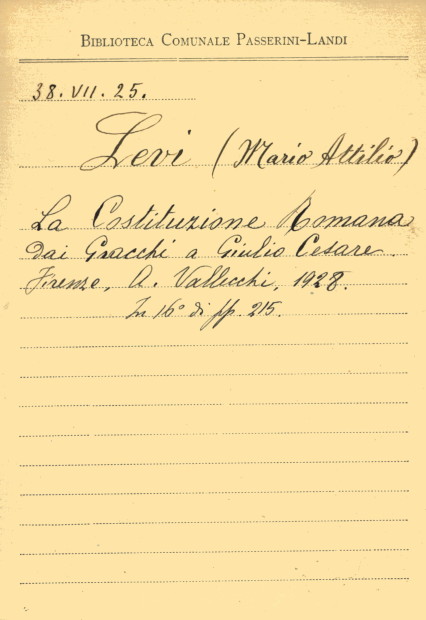 BIBLIOTECA COMUNALE PASSERINI-LANDI
38. VII. 25.
Levi (Mario Attilio)
La Costituzione Romana
dai Gracchi a Giulio Cesare.
Firenze, A. Vallecchi, 1928.
In 16° di pp. 215.